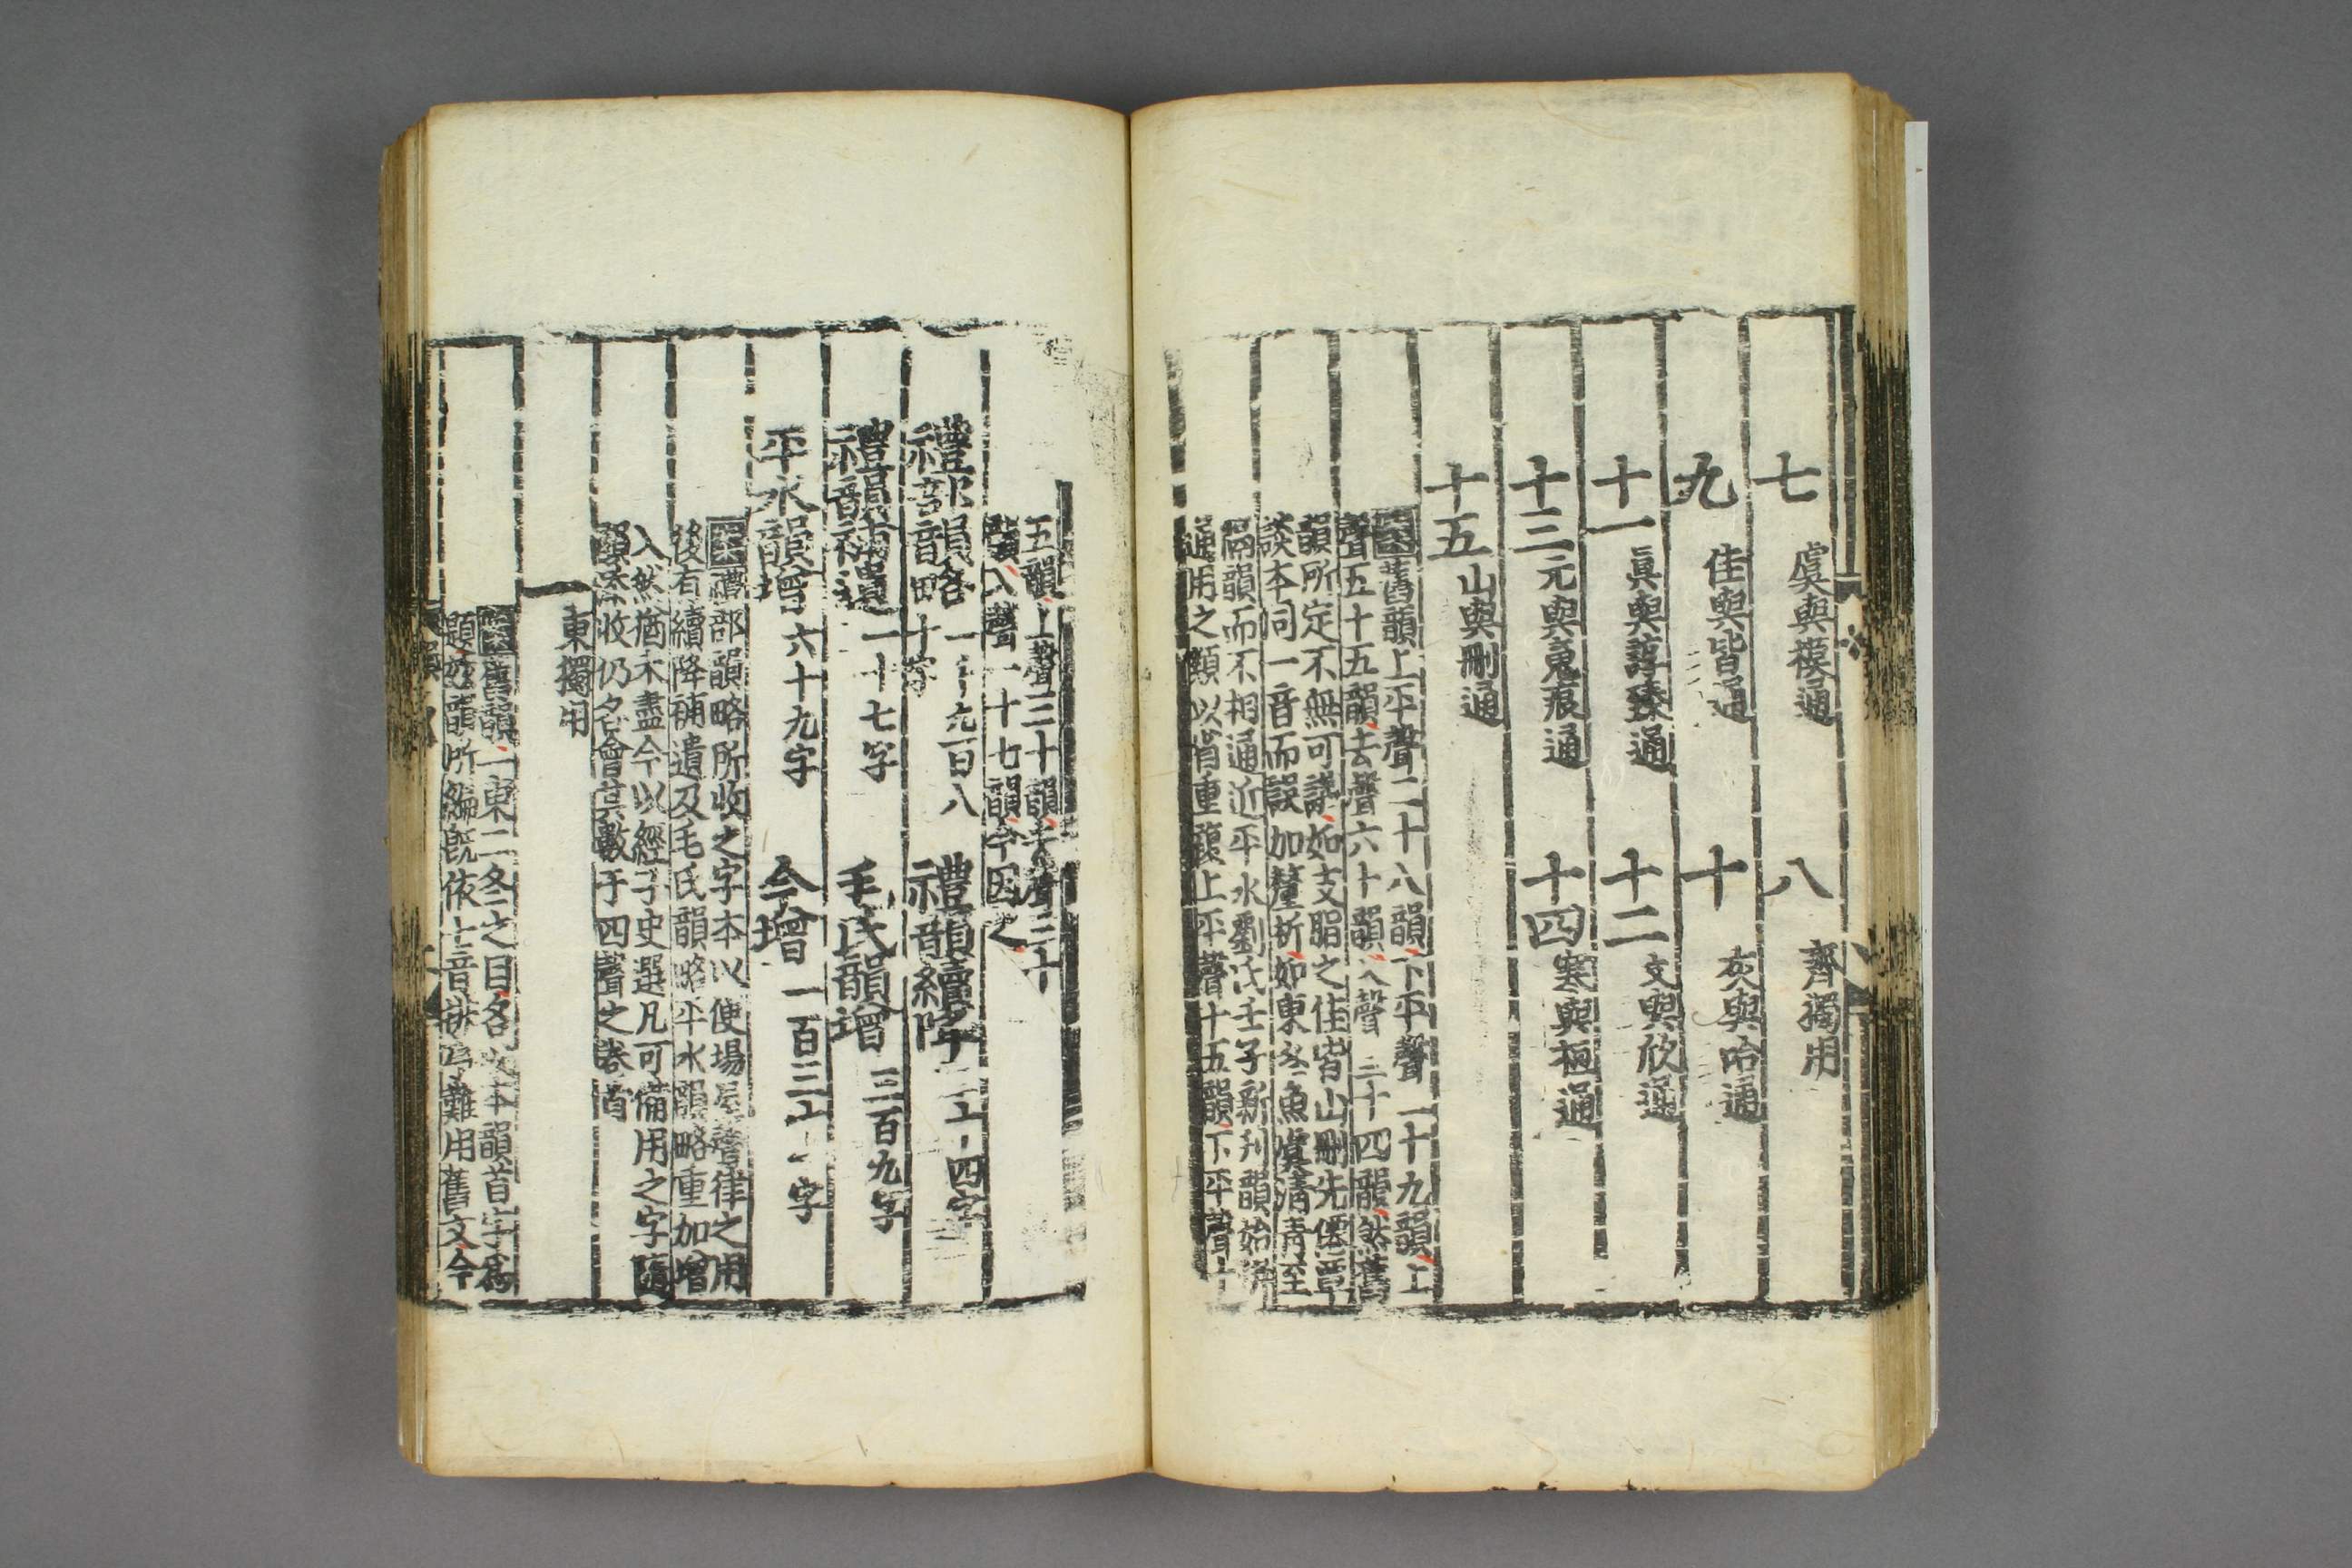 七 虞與模通 八 齊獨用
九 佳與皆通 十 灰與咍通
十一 眞與諄臻通 十二 文與欣通
十三 元與䰟痕通 十四 寒與桓通
十五 山與刪通
舊韻上平聲二十八韻下平聲二十九韻上
聲五十五韻去聲六十韻入聲三十四韻然舊
韻所定不無可議如支脂之佳皆山刪先僊覃
談本同一音而誤加釐析如東冬魚虞清青至
隔韻而不相通近平水劉氏壬子新刊韻始併
通用之類以省重複上平聲十五韻下平聲十
五韻上聲三十韻去聲三十
韻入聲一十七韻今因之
禮部韻略 一九百八
十字 禮韻續降 四字
禮韻補遺 一十七字 毛氏韻增 三百九字
平水韻增 六十九字 今增 一百三字
禮部韻略所收之字本以便場屋聲律之用
後有續降補遺及毛氏韻略平水韻略重加增
入然猶未盡今以經子史選凡可備用之字隨
類添收仍各會其數于四聲之卷首
一 東獨用
舊韻一東二冬之目各以本韻首字爲
題然韻所編旣依七音排序難用舊文今